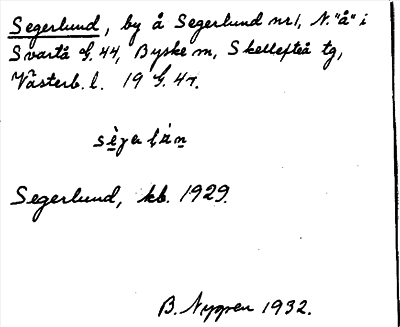 Segerlund, by å Segerlund nr1, N. "å" i
Svartå G. 44, Byske sn, Skellefteå tg,
Västerb. l. 19 G. 4r.
Segerlund, kb. 1929.
B. Nygren 1932.